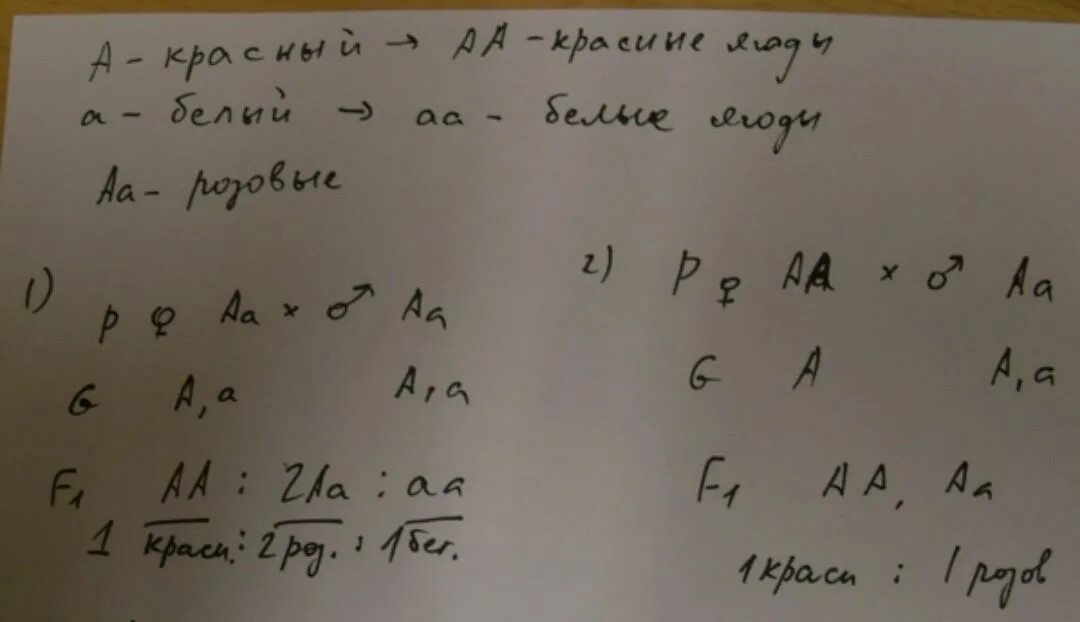 А - красный → АА - красные ягоды
а - белый → аа - белые ягоды
Аа - розовые
1)
P ♀ Аа × ♂ Аа
G А, а А, а
F₁ АА : 2Аа : аа
1 красн. : 2 роз. : 1 бел.
2)
P ♀ АА × ♂ Аа
G А А, а
F₁ АА, Аа
1 красн : 1 розов